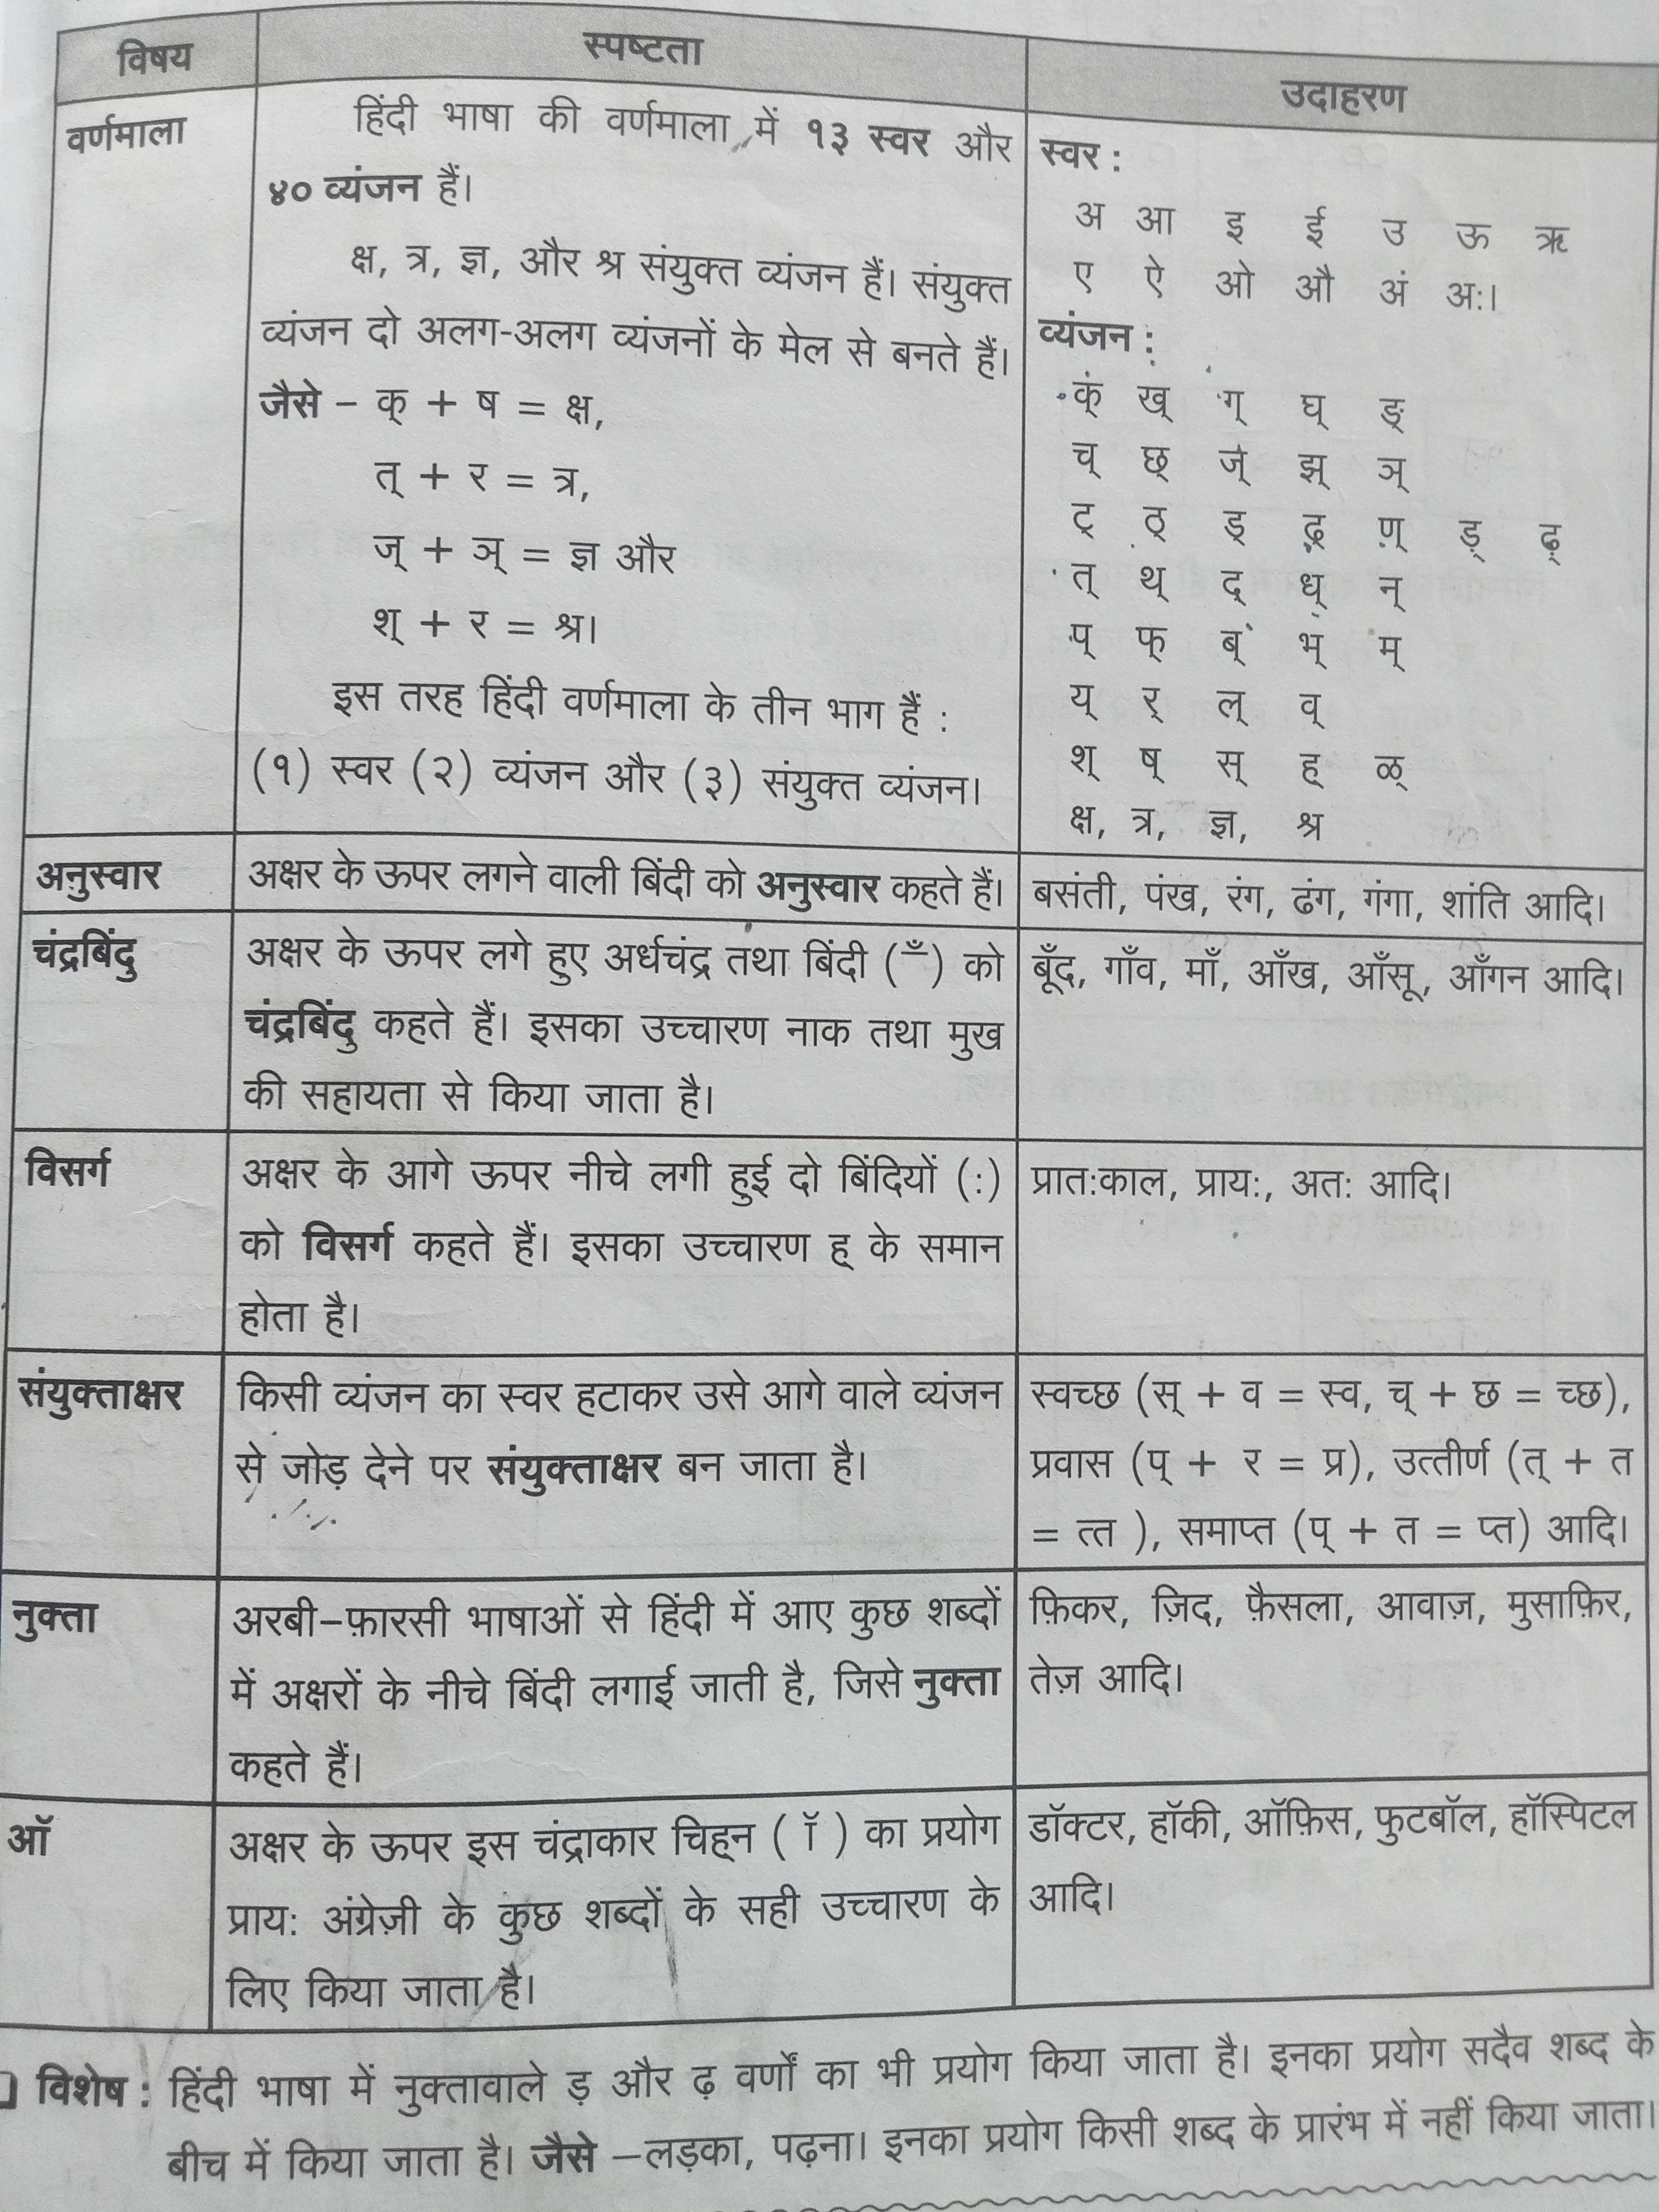 विषय
स्पष्टता
उदाहरण
वर्णमाला
हिंदी भाषा की वर्णमाला में १३ स्वर और
४० व्यंजन हैं।
क्ष, त्र, ज्ञ, और श्र संयुक्त व्यंजन हैं। संयुक्त
व्यंजन दो अलग-अलग व्यंजनों के मेल से बनते हैं।
जैसे – क् + ष = क्ष,
त् + र = त्र,
ज् + ञ् = ज्ञ और
श् + र = श्र।
इस तरह हिंदी वर्णमाला के तीन भाग हैं :
(१) स्वर (२) व्यंजन और (३) संयुक्त व्यंजन।
स्वर :
अ आ इ ई उ ऊ ऋ
ए ऐ ओ औ अं अः।
व्यंजन :
क् ख् ग् घ् ङ्
च् छ् ज् झ् ञ्
ट् ठ् ड् ढ् ण् ड़् ढ़्
त् थ् द् ध् न्
प् फ् ब् भ् म्
य् र् ल् व्
श् ष् स् ह् ळ्
क्ष, त्र, ज्ञ, श्र
अनुस्वार
अक्षर के ऊपर लगने वाली बिंदी को अनुस्वार कहते हैं।
बसंती, पंख, रंग, ढंग, गंगा, शांति आदि।
चंद्रबिंदु
अक्षर के ऊपर लगे हुए अर्धचंद्र तथा बिंदी (ँ) को
चंद्रबिंदु कहते हैं। इसका उच्चारण नाक तथा मुख
की सहायता से किया जाता है।
बूँद, गाँव, माँ, आँख, आँसू, आँगन आदि।
विसर्ग
अक्षर के आगे ऊपर नीचे लगी हुई दो बिंदियों (:)
को विसर्ग कहते हैं। इसका उच्चारण ह् के समान
होता है।
प्रातःकाल, प्रायः, अतः आदि।
संयुक्ताक्षर
किसी व्यंजन का स्वर हटाकर उसे आगे वाले व्यंजन
से जोड़ देने पर संयुक्ताक्षर बन जाता है।
स्वच्छ (स् + व = स्व, च् + छ = च्छ),
प्रवास (प् + र = प्र), उत्तीर्ण (त् + त
= त्त ), समाप्त (प् + त = प्त) आदि।
नुक्ता
अरबी–फ़ारसी भाषाओं से हिंदी में आए कुछ शब्दों
में अक्षरों के नीचे बिंदी लगाई जाती है, जिसे नुक्ता
कहते हैं।
फ़िकर, ज़िद, फ़ैसला, आवाज़, मुसाफ़िर,
तेज़ आदि।
ऑ
अक्षर के ऊपर इस चंद्राकार चिह्न ( ॉ ) का प्रयोग
प्रायः अंग्रेज़ी के कुछ शब्दों के सही उच्चारण के
लिए किया जाता है।
डॉक्टर, हॉकी, ऑफ़िस, फुटबॉल, हॉस्पिटल
आदि।
विशेष : हिंदी भाषा में नुक्तावाले ड़ और ढ़ वर्णों का भी प्रयोग किया जाता है। इनका प्रयोग सदैव शब्द के
बीच में किया जाता है। जैसे –लड़का, पढ़ना। इनका प्रयोग किसी शब्द के प्रारंभ में नहीं किया जाता।